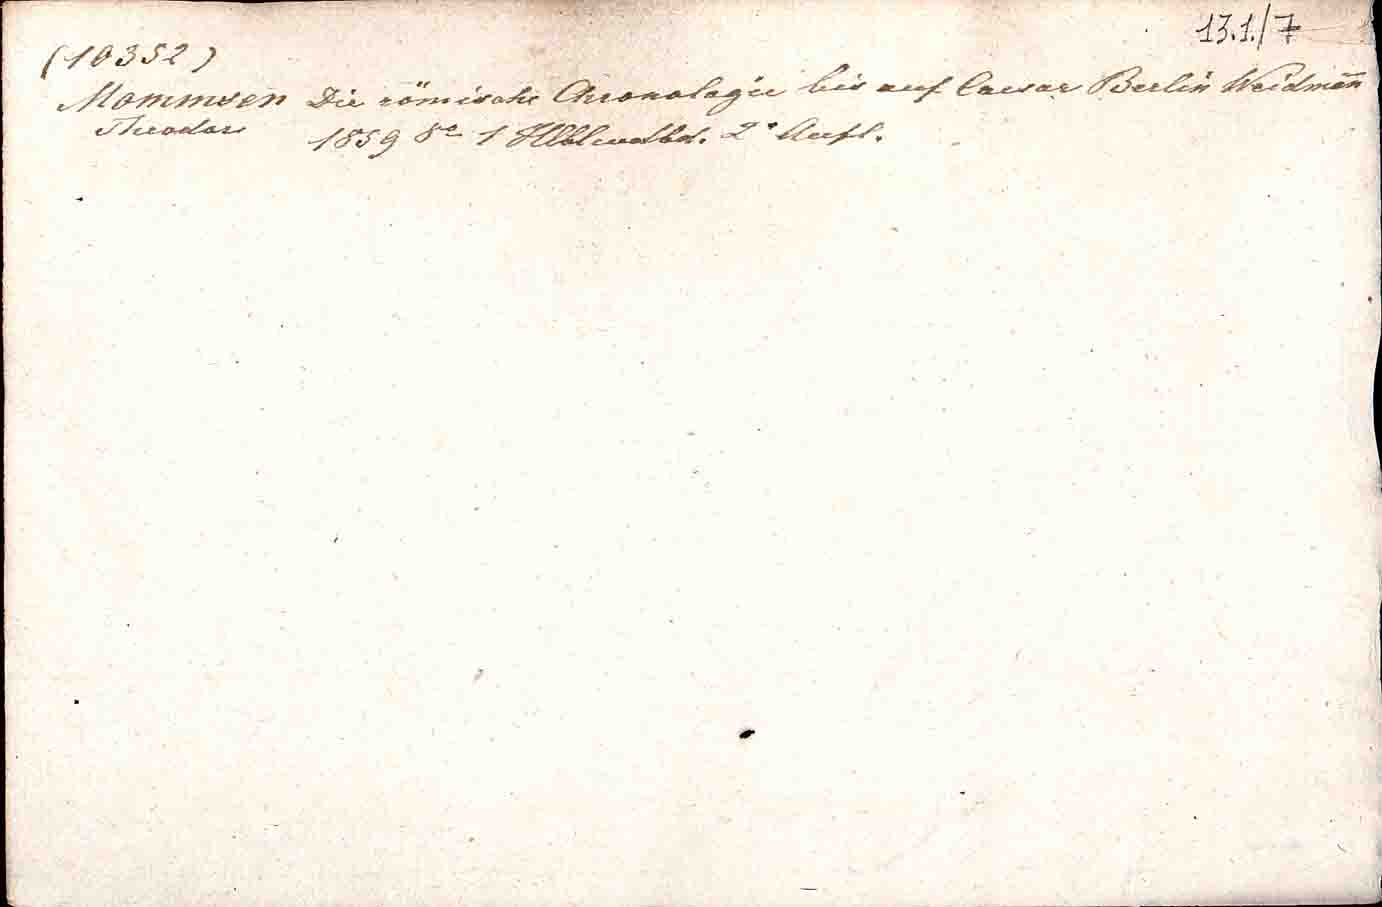 13.1./7
(10352)
Mommsen Die römische Chronologie bis auf Caesar Berlin Weidmañ
Theodor 1859 8º 1 Hlblwdbd. 2º Aufl.